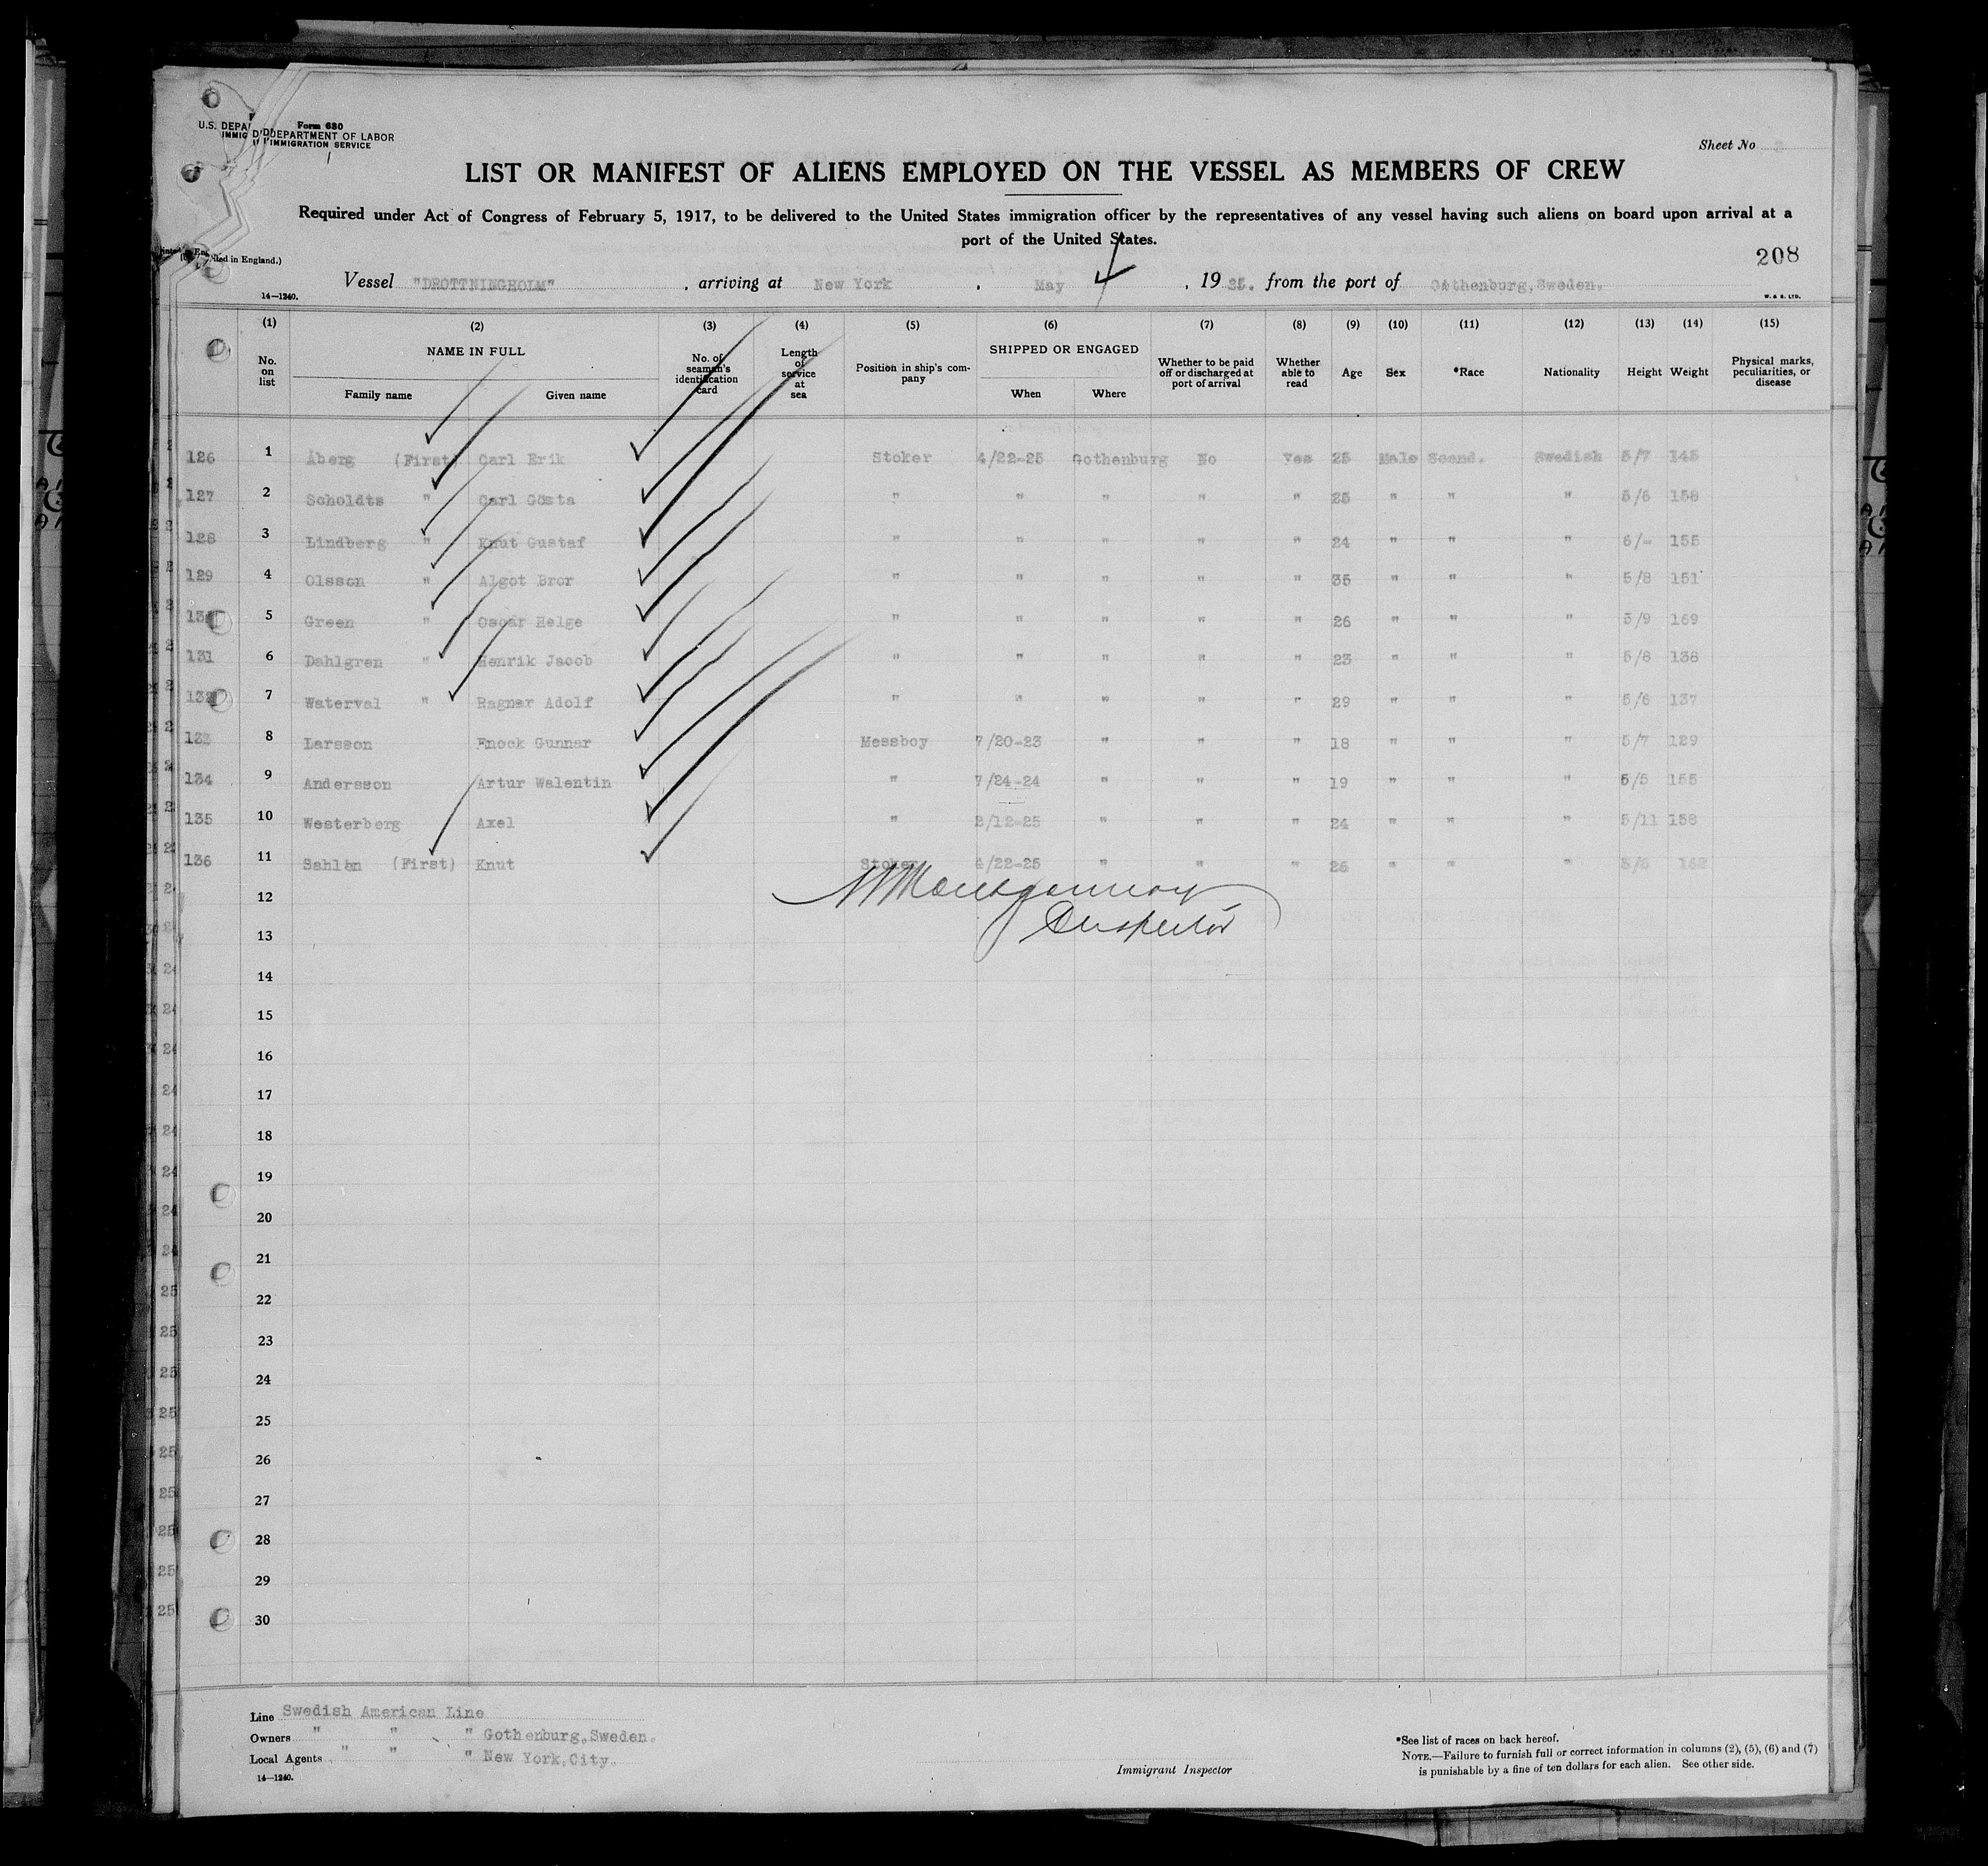 Form 680
U.S. DEPARTMENT OF LABOR
IMMIGRATION SERVICE
Sheet No
LIST OR MANIFEST OF ALIENS EMPLOYED ON THE VESSEL AS MEMBERS OF CREW
Required under Act of Congress of February 5, 1917, to be delivered to the United States immigration officer by the representatives of any vessel having such aliens on board upon arrival at a
port of the United States.
208
Vessel "DROTTNINGHOLM", arriving at New York, May 4, 1925. from the port of Gothenburg, Sweden.
14—1240.
W. & S. LTD.
(1) (2) (3) (4) (5) (6) (7) (8) (9) (10) (11) (12) (13) (14) (15)
No. on list NAME IN FULL Family name Given name No. of seaman's identification card Length of service at sea Position in ship's company SHIPPED OR ENGAGED When Where Whether to be paid off or discharged at port of arrival Whether able to read Age Sex *Race Nationality Height Weight Physical marks, peculiarities, or disease
126 1 Åberg (First) Carl Erik Stoker 4/22-25 Gothenburg No Yes 25 Male Scand. Swedish 5/7 145
127 2 Scholdts " Carl Gösta " " " " " 25 " " " 5/6 158
128 3 Lindberg " Knut Gustaf " " " " " 24 " " " 6/- 155
129 4 Olsson " Algot Bror " " " " " 35 " " " 5/8 151
130 5 Green " Oscar Helge " " " " " 26 " " " 5/9 169
131 6 Dahlgren " Henrik Jacob " " " " " 23 " " " 5/8 138
132 7 Waterval " Ragnar Adolf " " " " " 29 " " " 5/6 137
133 8 Larsson Enock Gunnar Messboy 7/20-23 " " " 18 " " " 5/7 129
134 9 Andersson Artur Walentin " 7/24-24 " " " 19 " " " 5/5 155
135 10 Westerberg Axel " 3/12-25 " " " 24 " " " 5/11 158
136 11 Sahlén (First) Knut Stoker 4/22-25 " " " 26 " " " 5/6 162
Montgomery
Inspector
12
13
14
15
16
17
18
19
20
21
22
23
24
25
26
27
28
29
30
Line Swedish American Line
Owners " " " Gothenburg, Sweden.
Local Agents " " " New York, City.
14—1240.
Immigrant Inspector
*See list of races on back hereof.
NOTE.—Failure to furnish full or correct information in columns (2), (5), (6) and (7)
is punishable by a fine of ten dollars for each alien. See other side.